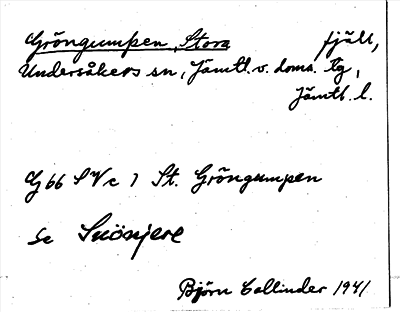 Gröngumpen, Stora fjäll,
Undersåkers sn, Jämtl. v. doms. tg,
Jämtl. l.
G 66 SVc 7 St. Gröngumpen
Se Snösjere
Björn Collinder 1941